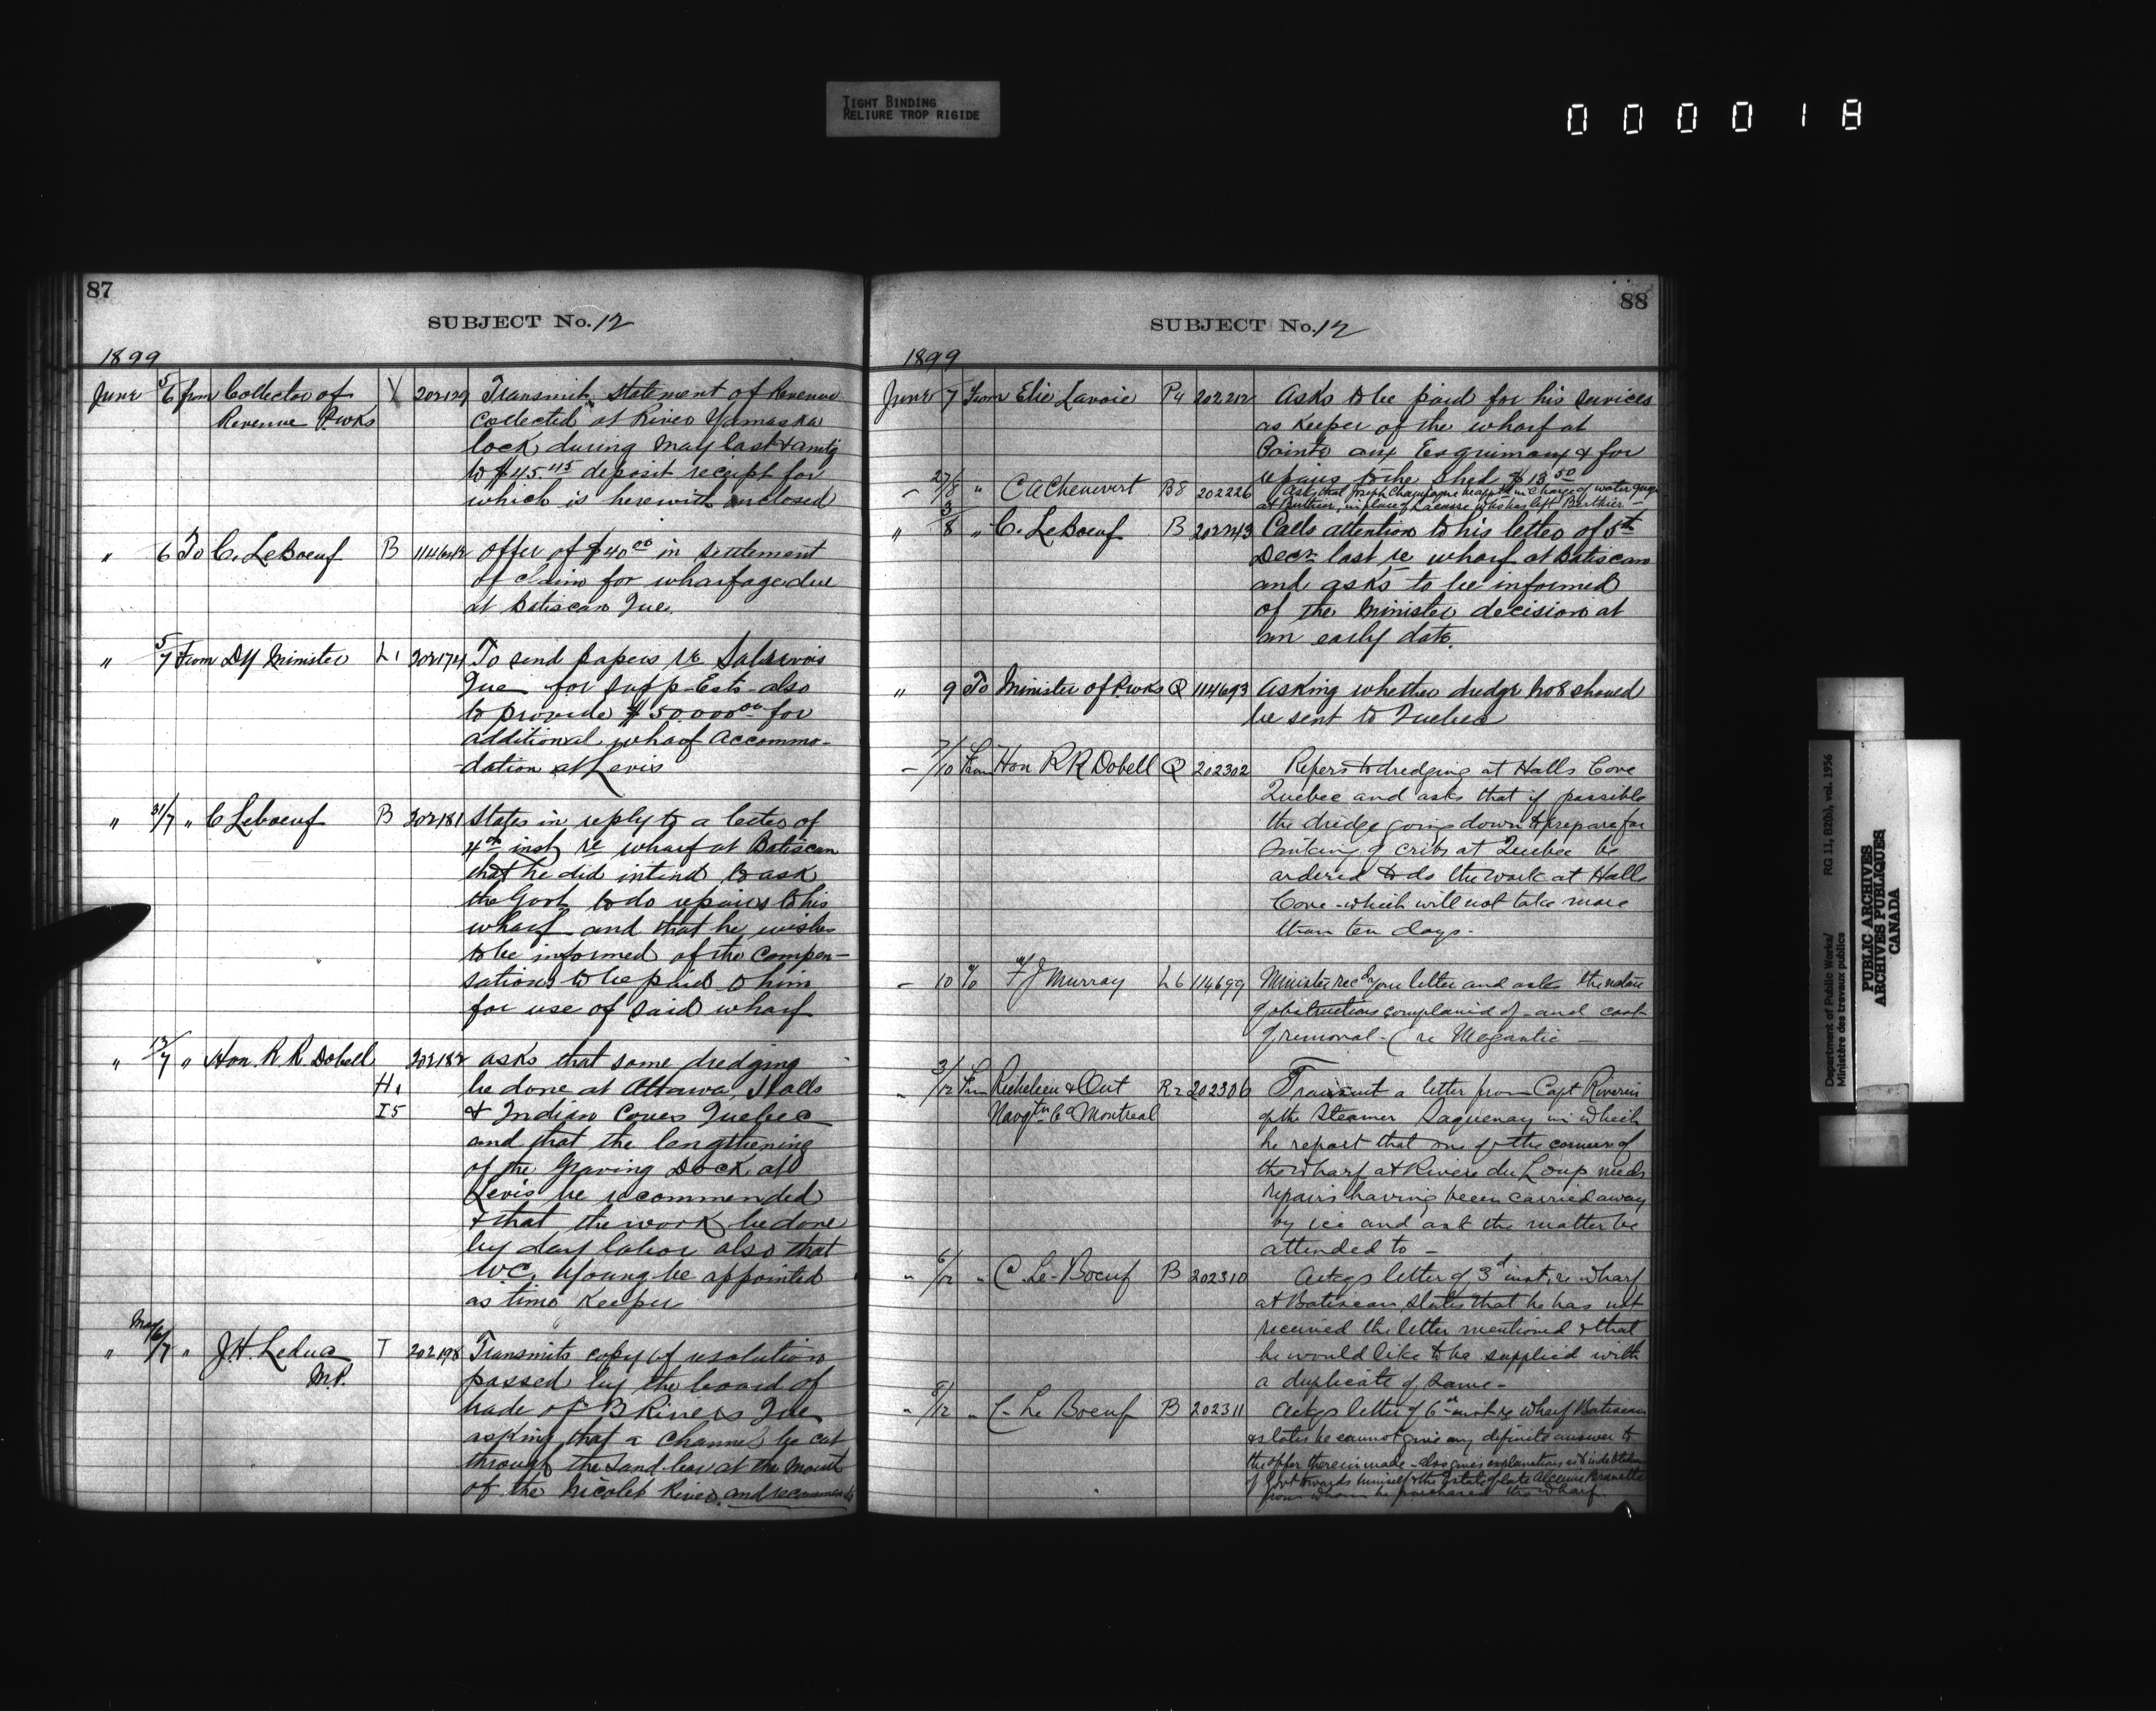 TIGHT BINDING
RELIURE TROP RIGIDE
000018
87
SUBJECT No. 12
1899
June 5/6 from Collector of Y 202129 Transmits statement of Revenue
Revenue P.wks collected at River Yamaska
lock during May last & amtg
to $45.45 deposit receipt for
which is herewith enclosed
" 6 To C. LeBoeuf B Offer of $40.00 in settlement
of claim for wharfage due
at Batiscan Que.
" 5/7 From Dy Minister L1 202174 To send papers re
Que for supp Ests also
to provide $50.000.00 for
additional wharf accommo-
-dation at Levis
" 31/7 " C Leboeuf B 202181 States in reply to a letter of
4th inst re wharf at Batiscan
that he did intend to ask
the Govt to do repairs to his
wharf and that he wishes
to be informed of the compen-
sation to be paid to him
for use of said wharf
" 13/7 " Hon. R R Dobell 202182 asks that some dredging
H1 be done at Ottawa, Halls
I5 & Indian Coves Quebec
and that the lengthening
of the Graving Dock at
Levis be recommended
& that the work be done
by day labor also that
W.C. Young be appointed
as time Keeper
" May 16/7 " J.H. Leduc T 202198 Transmits copy of resolution
M.P. passed by the board of
trade of 3 Rivers Que
asking that a channel be cut
through the sand bar at the mouth
of the Nicolet River and recommends
88
SUBJECT No. 12
1899
June 7 From Elie Lavoie P4 202212 Asks to be paid for his services
as Keeper of the wharf at
Pointe aux Esquimaux & for
repairs to the shed $13.50
- 27/8 " C A Chenevert B8 202226 Ask that Joseph Champagne be apptd in charge of water guage
at Berthier, in place of Lacasse who has left Berthier -
" 3/8 " C. LeBoeuf B 202243 Calls attention to his letter of 5th
Decr last re wharf at Batiscan
and asks to be informed
of the Minister decision at
an early date.
" 9 To Minister of P.wks Q 114693 Asking whether dredge No 8 should
be sent to Quebec
- 7/10 From Hon R R Dobell Q 202302 Refers to dredging at Halls Cove
Quebec and asks that if possible
the dredge going down to prepare for
sinking of cribs at Quebec be
ordered to do the work at Halls
Cove - which will not take more
than ten days -
- 10 To F J Murray L6 114699 Minister recd your letter and asks the nature
of obstructions complained of - and cost
of removal - (re Megantic -
" 3/12 From Richelieu & Ont R2 202306 Transmit a letter from Capt Riverin
Navgtn Co Montreal of the Steamer Saguenay in which
he report that one of the corners of
the wharf at Riviere du Loup needs
repairs having been carried away
by ice and ask the matter be
attended to -
" 6/12 " C. Le-Boeuf B 202310 Ackgs letter of 3d inst, re wharf
at Batiscan, States that he has not
received the letter mentioned & that
he would like to be supplied with
a duplicate of same -
" 8/12 " C - Le Boeuf B 202311 Ackgs letter of 6th inst re wharf Batiscan
& states he cannot give any definite answer to
the offer therein made - also gives explanations as to indebtedness
of Govt towards himself & the Estate of late
from whom he purchased the wharf
Department of Public Works/ RG 11, B2(b), vol. 1956
Ministère des travaux publics
PUBLIC ARCHIVES
ARCHIVES PUBLIQUES
CANADA